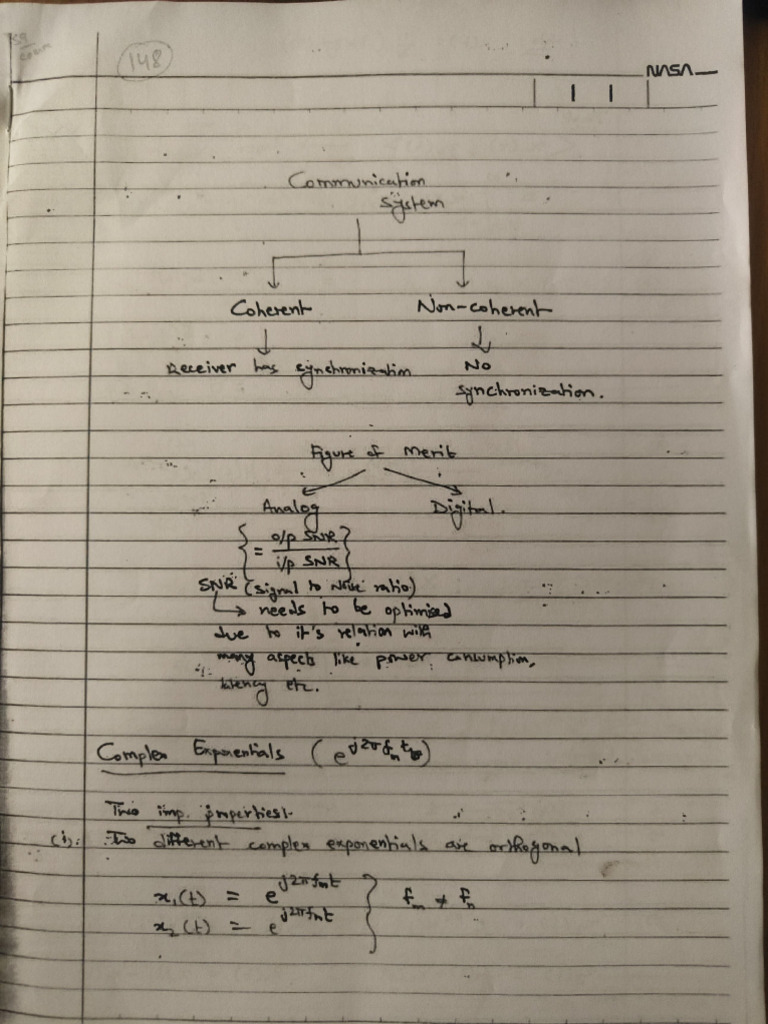 148
NASA
Communication
System
Coherent Non-coherent
Receiver has synchronization No
synchronization.
Figure of Merit
Analog Digital.
{ = o/p SNR / i/p SNR }
SNR (Signal to Noise ratio)
↳ needs to be optimised
due to it's relation with
many aspects like power consumption,
latency etc.
Complex Exponentials (e^{j2πf_n t})
Two imp. properties:-
(i). Two different complex exponentials are orthogonal
x₁(t) = e^{j2πf_m t} } f_m ≠ f_n
x₂(t) = e^{j2πf_n t}